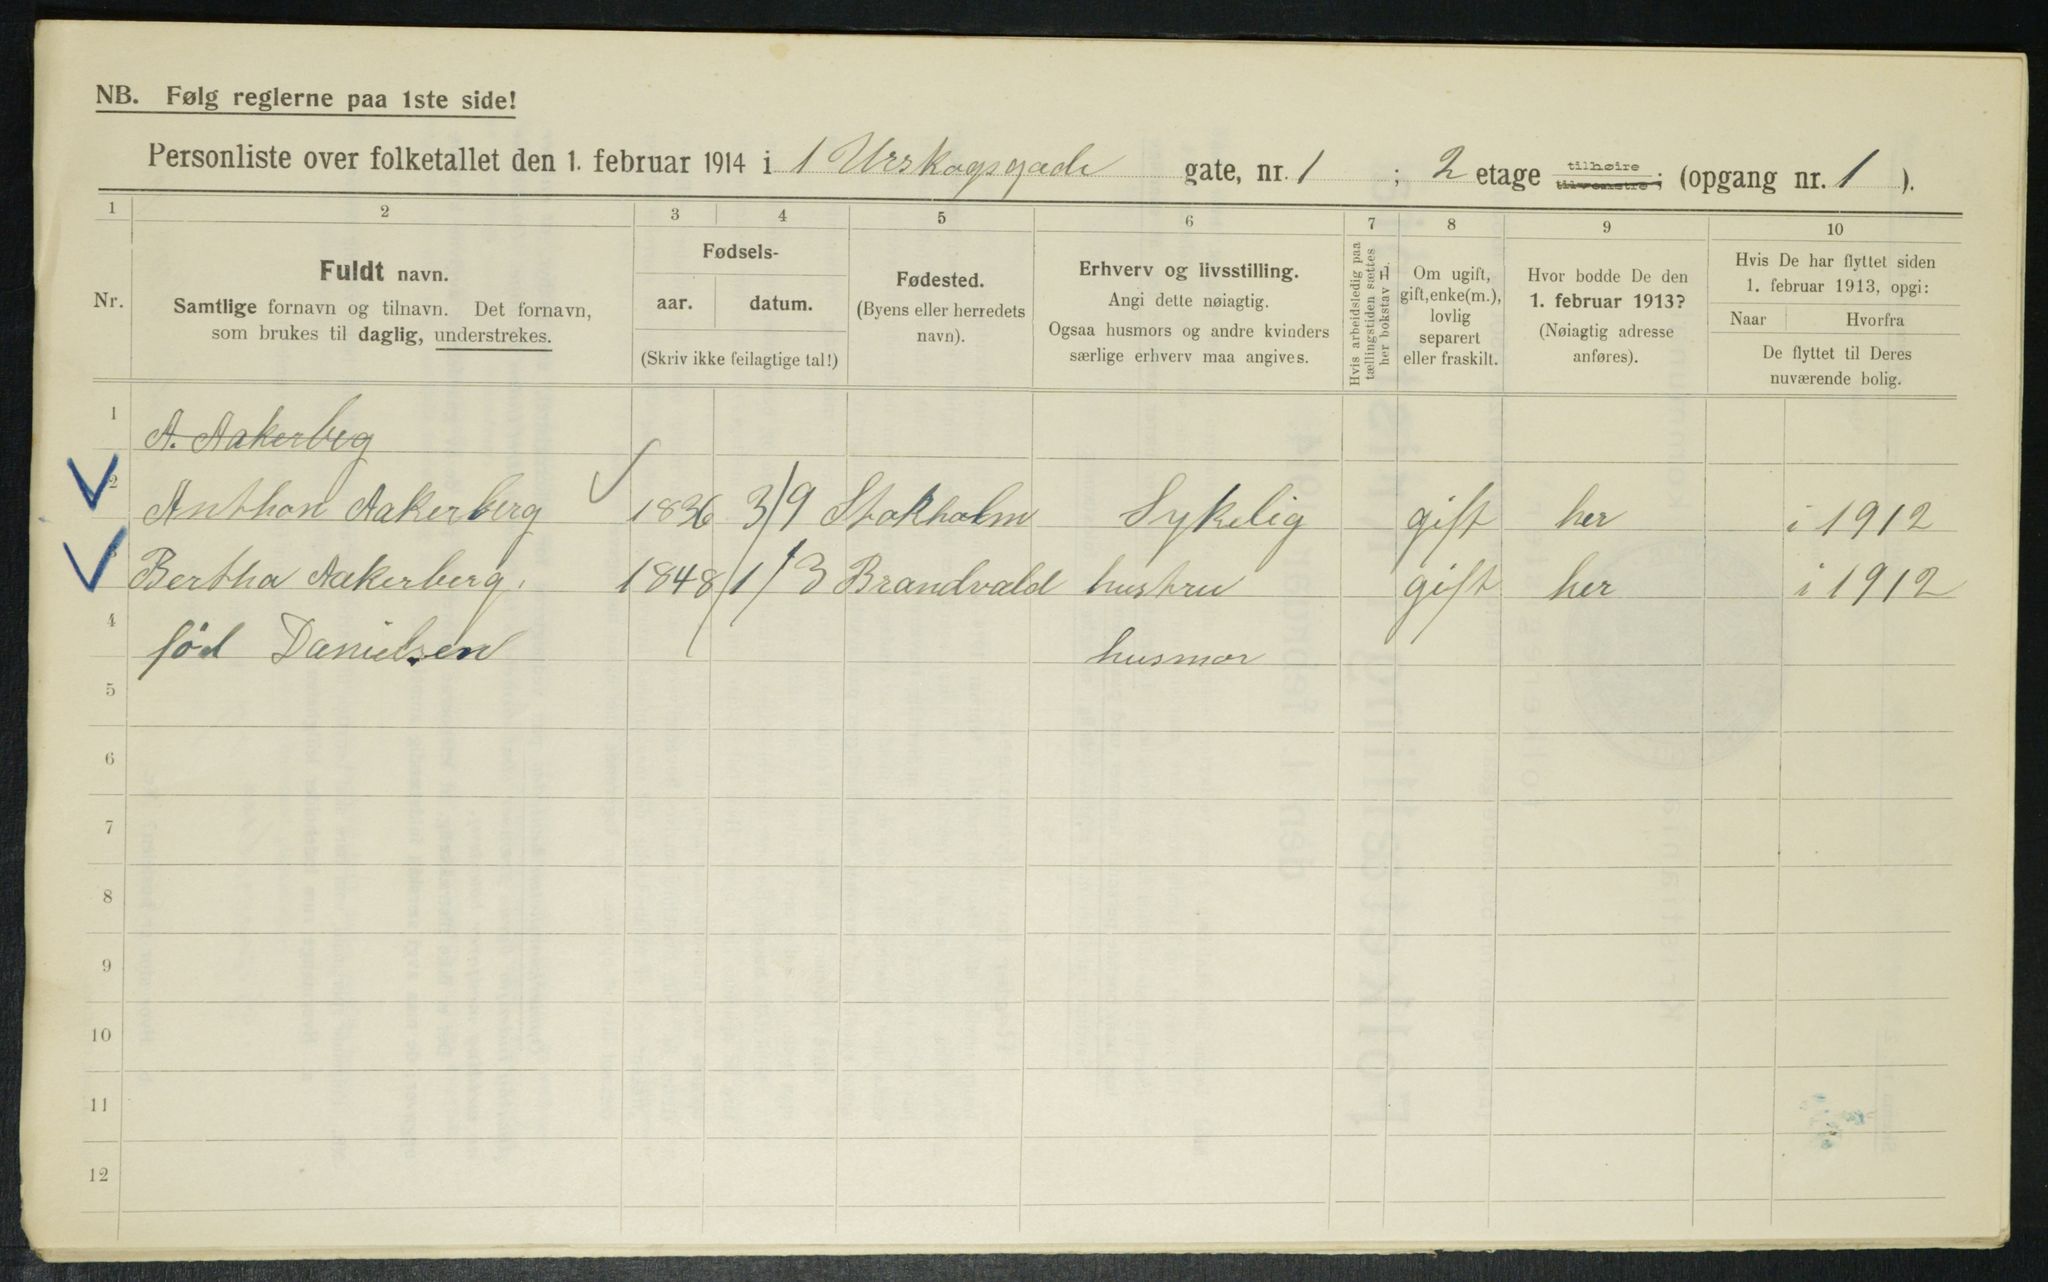 NB. Følg reglerne paa 1ste side!
Personliste over folketallet den 1. februar 1914 i 1 Urskogsgade gate, nr. 1 ; 2 etage tilhøire tilvenstre; (opgang nr. 1 ).
1 2 3 4 5 6 7 8 9 10
Nr.
Fuldt navn.
Samtlige fornavn og tilnavn. Det fornavn,
som brukes til daglig, understrekes.
Fødsels-
aar. datum.
(Skriv ikke feilagtige tal!)
Fødested.
(Byens eller herredets
navn).
Erhverv og livsstilling.
Angi dette nøiagtig.
Ogsaa husmors og andre kvinders
særlige erhverv maa angives.
Hvis arbeidsledig paa
tællingstiden sættes
her bokstav L.
Om ugift,
gift, enke(m.),
lovlig
separert
eller fraskilt.
Hvor bodde De den
1. februar 1913?
(Nøiagtig adresse
anføres).
Hvis De har flyttet siden
1. februar 1913, opgi:
Naar Hvorfra
De flyttet til Deres
nuværende bolig.
1 A. Aakerbeg
2 Anthon Aakerberg 1836 3/9 Stokholm Sykelig gift her i 1912
3 Bertha Aakerberg. 1848 1/3 Brandvald hustru gift her i 1912
4 föd Danielsen husmor
5
6
7
8
9
10
11
12